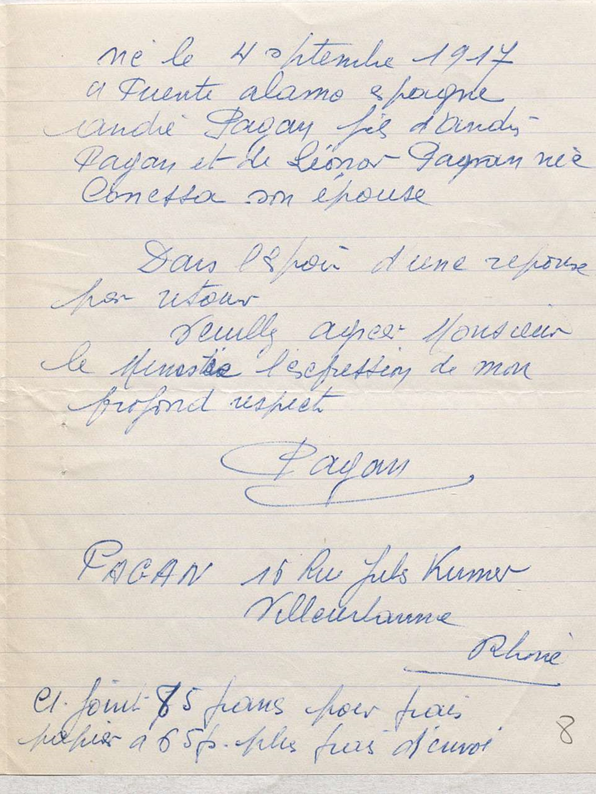 né le 4 septembre 1917
a Fuente alamo espagne
andré Pagan fils d'andré
Pagan et de Léonor Pagan née
Conessa son épouse
Dans l'espoir d'une reponse
par retour
Veuillez agreer Monsieur
le Ministre l'expression de mon
profond respect
Pagan
PAGAN 15 Rue Jules Kumer
Villeurbanne
Rhone
Ci. joint 85 francs pour frais
papier a 65f. plus frais d'envoi
8